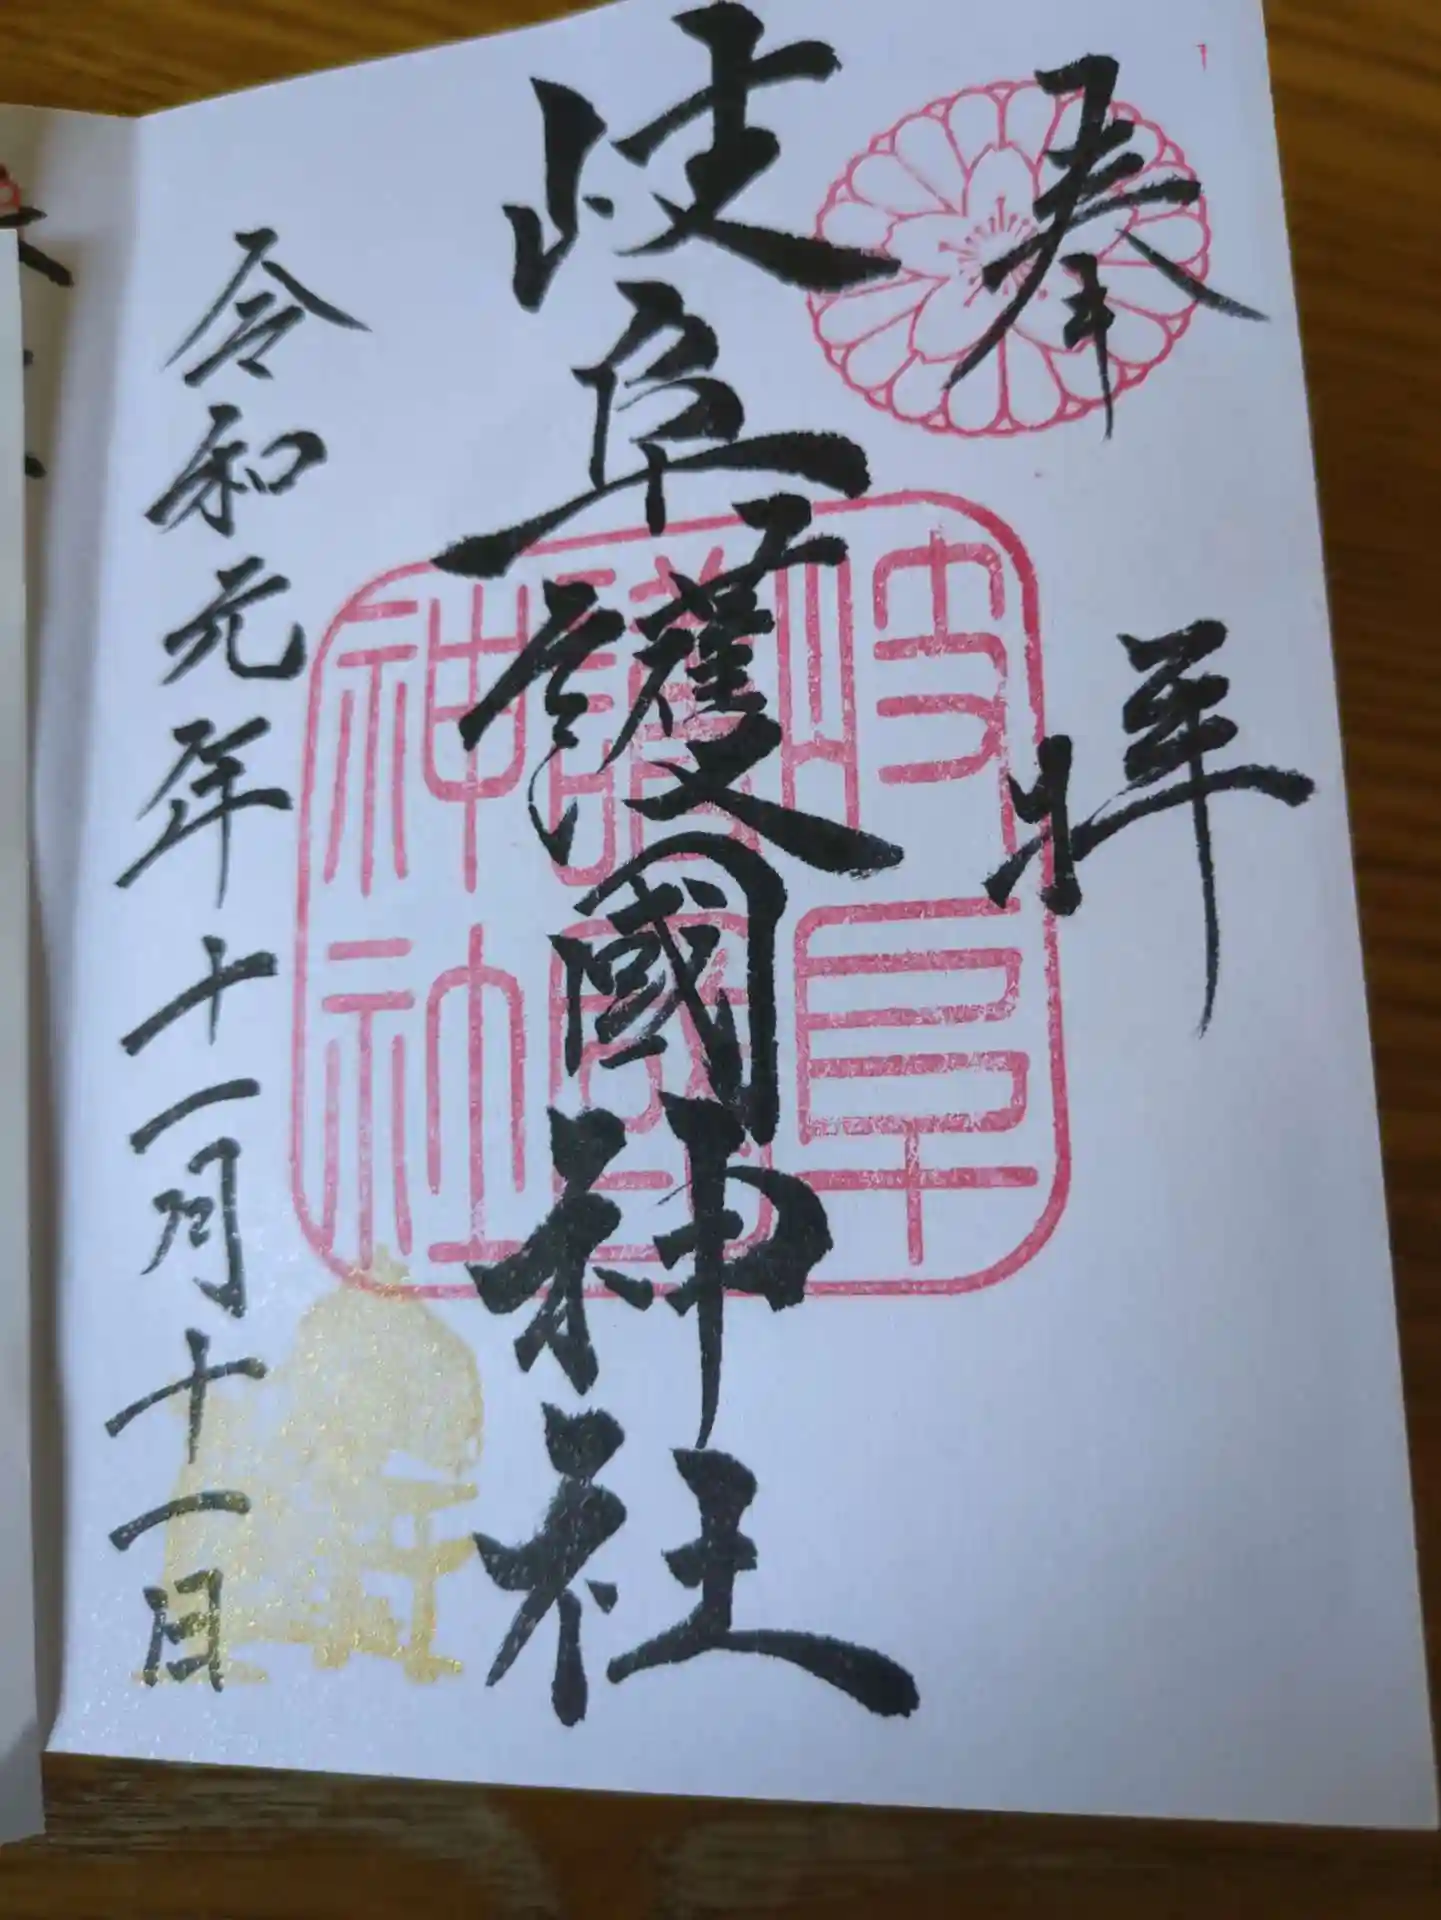 奉拝
岐阜護國神社
岐阜
護國
神社
令和元年十一月十一日